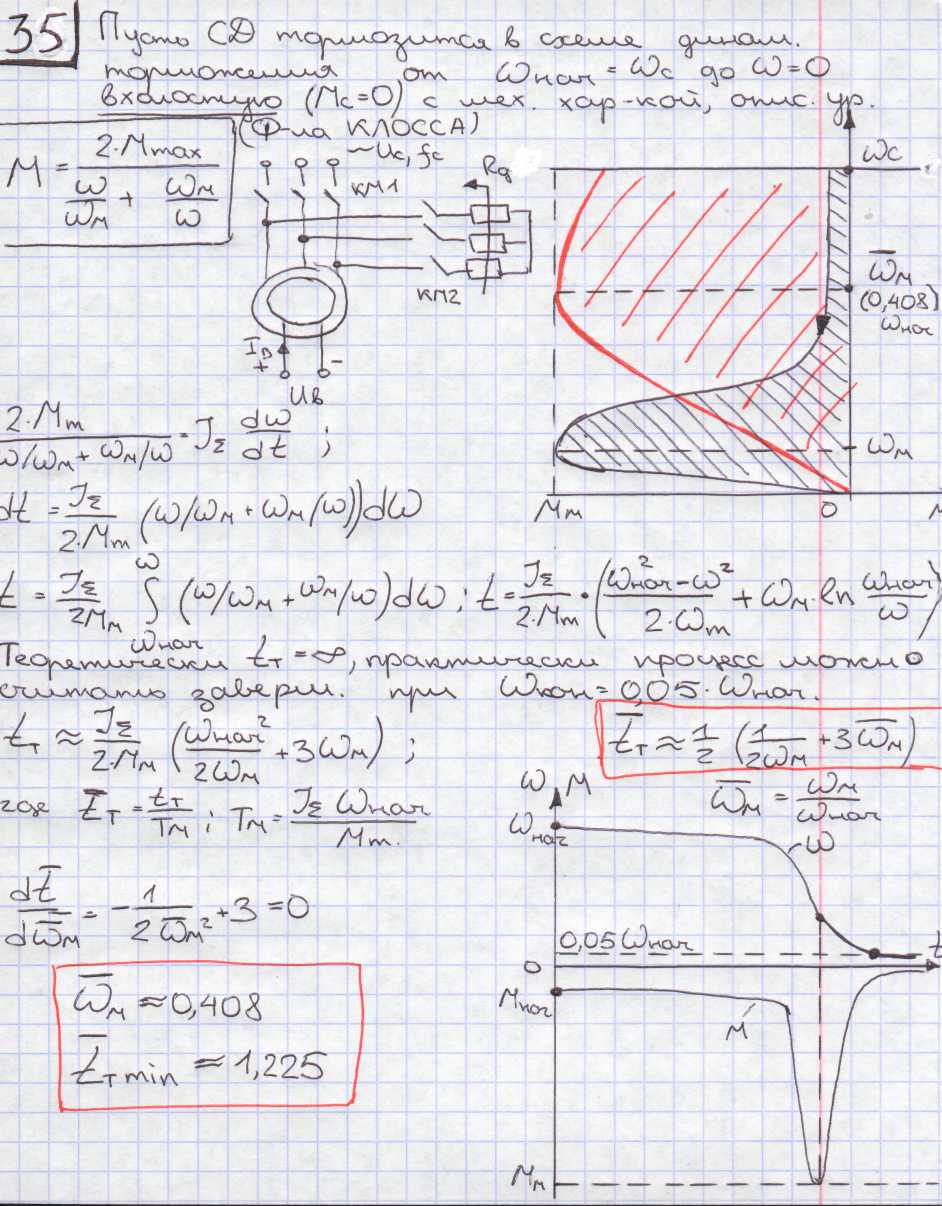 35
Пусть СД тормозится в схеме динам.
торможения от ωнач = ωс до ω=0
вхолостую (Мс=0) с мех. хар-кой, опис. ур.
(Ф-ла КЛОССА)
M = 2·Mmax / (ω/ωм + ωм/ω)
~Uc, fc
КМ1
Rд
КМ2
Iв
+
-
Uв
ωc
ω̅м
(0,408)
ωнач
ωм
Mм
0
M
2·Mm / (ω/ωм + ωм/ω) = JΣ dω/dt ;
dt = JΣ/(2·Mm) (ω/ωм + ωм/ω))dω
t = JΣ/(2Mм) ∫ωнач^ω (ω/ωм + ωм/ω)dω ; t = JΣ/(2·Mm) · ((ωнач² - ω²)/(2·ωm) + ωм·ln ωнач/ω)
Теоретически tт = ∞, практически процесс можно
считать заверш. при ωкон = 0,05·ωнач.
tт ≈ JΣ/(2·Mм) (ωнач²/(2ωм) + 3ωм) ;
t̅т ≈ 1/2 (1/(2ω̅м) + 3ω̅м)
где t̅т = tт/Tм ; Tм = JΣ ωнач/Mm.
ω̅м = ωм/ωнач
dt̅/dω̅м = -1/(2ω̅м²) + 3 = 0
ω̅м ≈ 0,408
t̅т min ≈ 1,225
ω M
ωнач
ω
0,05ωнач
t
0
Mнач
M
Mм